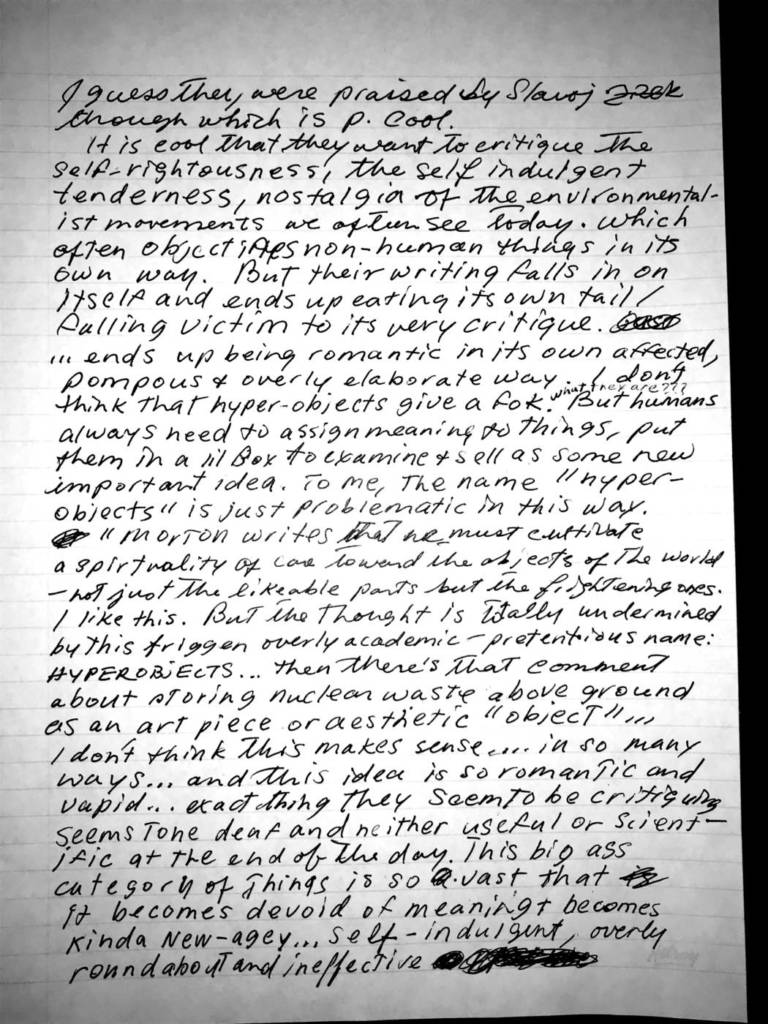 I guess they were praised by Slavoj Zizek
though which is p. cool.
It is cool that they want to critique the
self-rightousness, the self indulgent
tenderness, nostalgia of the environmental-
ist movements we often see today. Which
often objectifies non-human things in its
own way. But their writing falls in on
itself and ends up eating its own tail /
falling victim to its very critique.
... ends up being romantic in its own affected,
pompous & overly elaborate way. I don't
what they are???
think that hyper-objects give a fok. But humans
always need to assign meaning to things, put
them in a lil Box to examine & sell as some new
important idea. To me, The name "hyper-
objects" is just problematic in this way.
"Morton writes that we must cultivate
a spirtuality of care toward the objects of the world
- not just the likeable parts but the frightening ones.
I like this. But the thought is totally undermined
by this friggen overly academic - pretentious name:
HYPEROBJECTS... then there's that comment
about storing nuclear waste above ground
as an art piece or aesthetic "object"...
I don't think this makes sense.... in so many
ways... and this idea is so romantic and
vapid... exact thing they seem to be critiquing
seems tone deaf and neither useful or scient-
ific at the end of the day. This big ass
category of things is so vast that
it becomes devoid of meaning & becomes
kinda New-agey... self-indulgent, overly
roundabout and ineffective